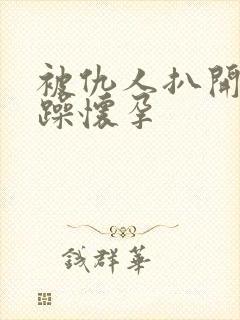 被仇人扒開
躁懷孕
錢群華